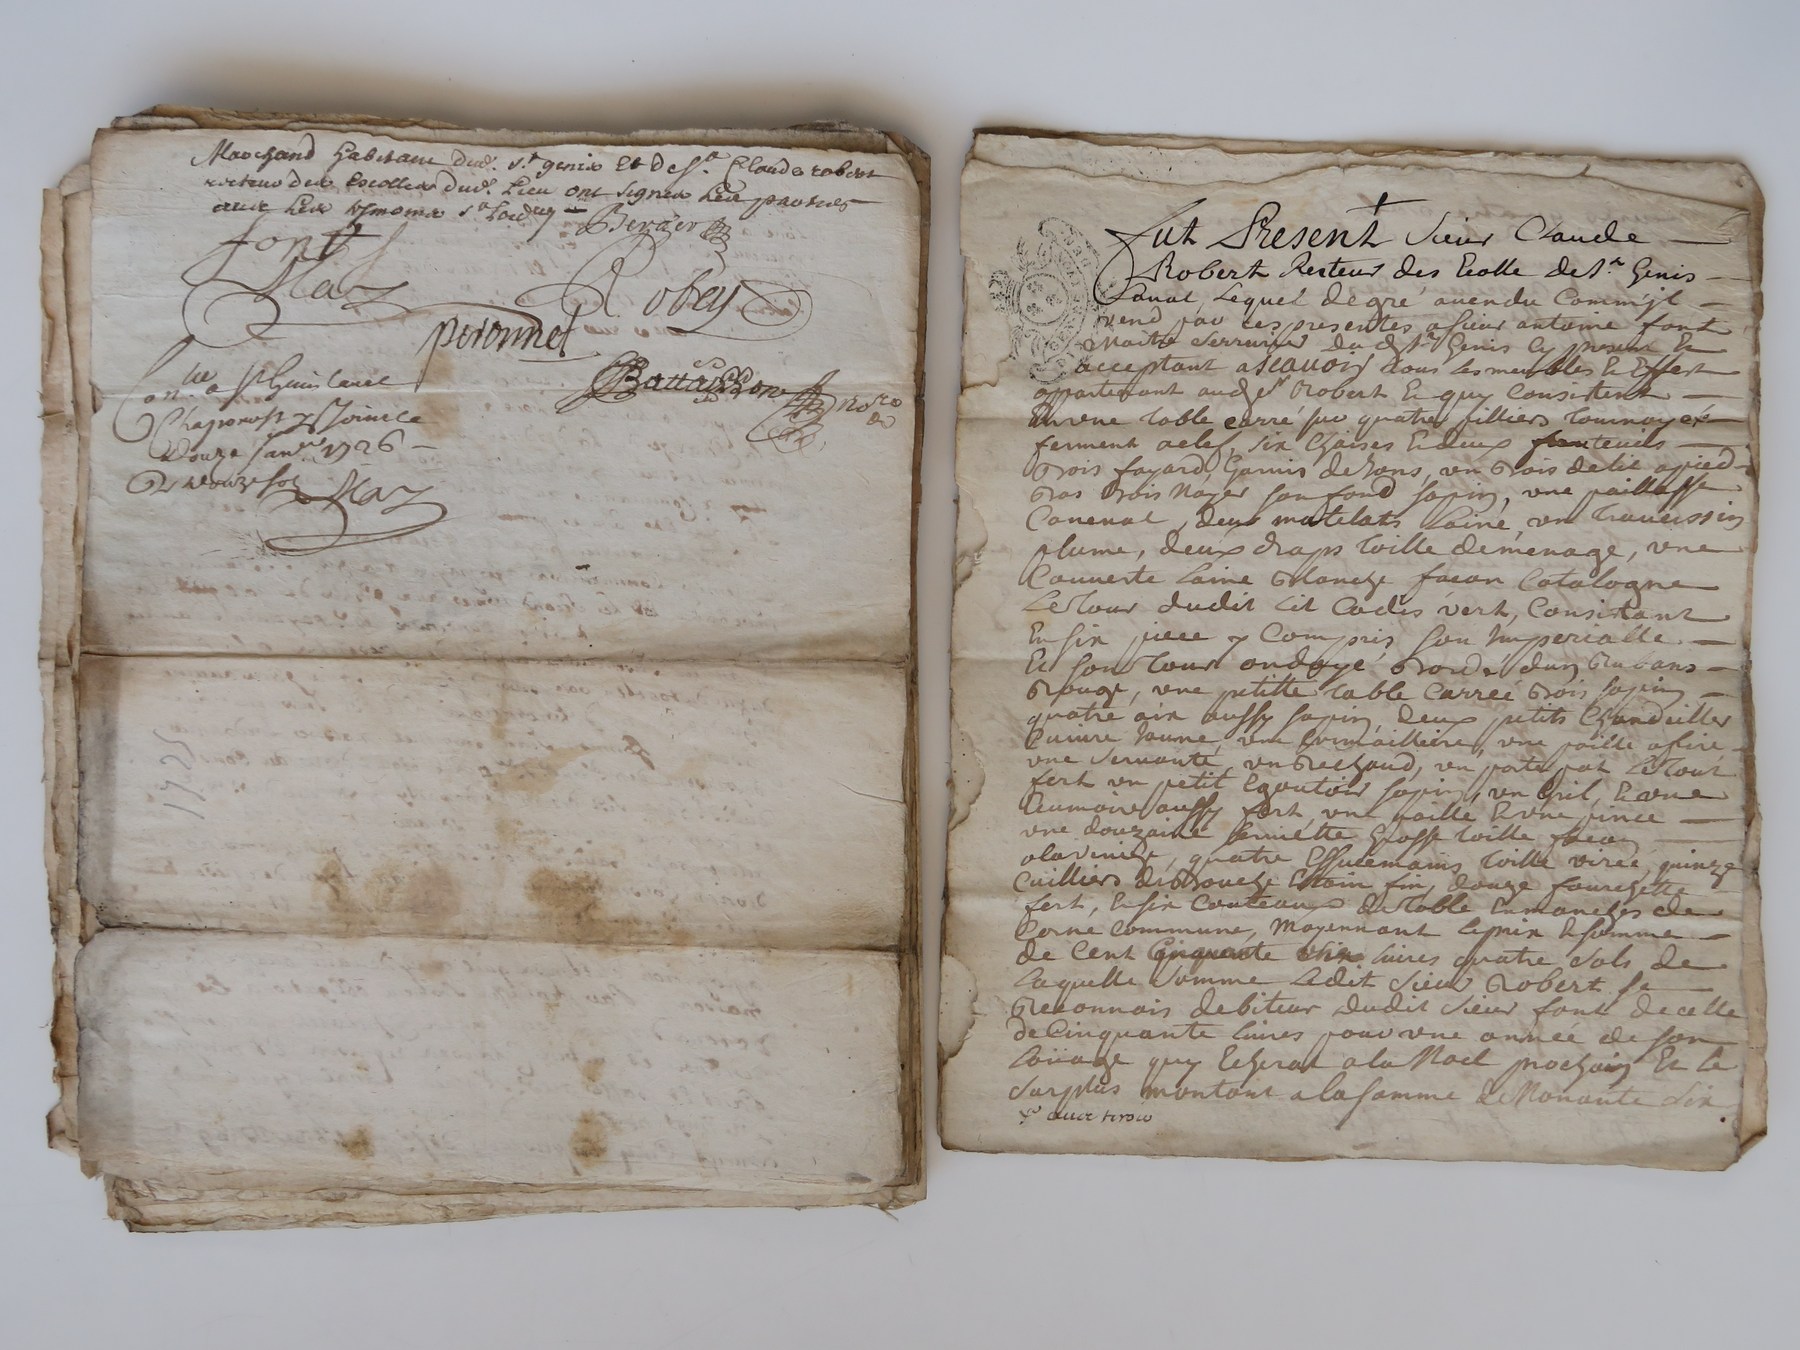 Marchand habitant dud. st genix et de sr. Claude robert
recteur des Escolles dud. Lieu ont signer Les parties
avec Les
Berger
font
Maz
Robert
peronnet
Con.lle a St Guinlaval
Chaponost y Joincte
douze janer 1726
R douze sols
Maz
1725
Fut Present Sieur Claude
Robert Recteur des Ecolle de St. Genis
Laval, Lequel de gré a vendu Comm'jl
vend par ces presentes a sieur antoine font
Maitre Serrurier du d. St Genis Cy present Et
acceptant a scauoir tous les meubles Et Effect
appartenant aud. sr Robert Et quy Consistent
En vne table carré sur quatre pilliers tournoyer
ferment a clef, six chaises Et deux fauteuils
Bois fayard, Garnis de Jons, vn Bois de lit a pied
Bas Bois Noyer son fond sapin, vne paillasse
Caneuat, deux matelats Laine, vn trauerssin
plume, deux draps toille de menage, vne
Couuerte Laine Blanche facon Catalogne
Le Tour dudit Lit Cadis vert, Consistant
En six piece y Compris son Imperialle
Et son tour ondoyé Bordé d'un Rubans
Rouge, vne petitte table Carreé Bois sapin
quatre aix aussy sapin, deux petits Chandeillier
Cuivre Jaune, vne Crémailliere, vne poille a frire
vne Seruante, vn Rechaud, vn porte pot Le tout
fert vn petit Egoutoir sapin, vn Gril, Et vne
Ecumoire aussy fert, vne paille Et vne pince
vne douzaine serviette Grosse toille
a la Venize, quatre Essuiemains toille virée, quinze
Cuilliers de Bouche Etain fin, douze fourchette
fert, Et six Couteaux de table Enmanchés de
Corne Commune, Moyennant Le prix & somme
de Cent Cinquante Livres quatre Sols de
Laquelle Somme Ledit Sieur Robert se
Reconnois debiteur dudit Sieur font de celle
de Cinquante Liures pour vne année de son
Loüage quy Echerat a la Noel prochain Et le
Surplus montant a la somme de Nonante Six